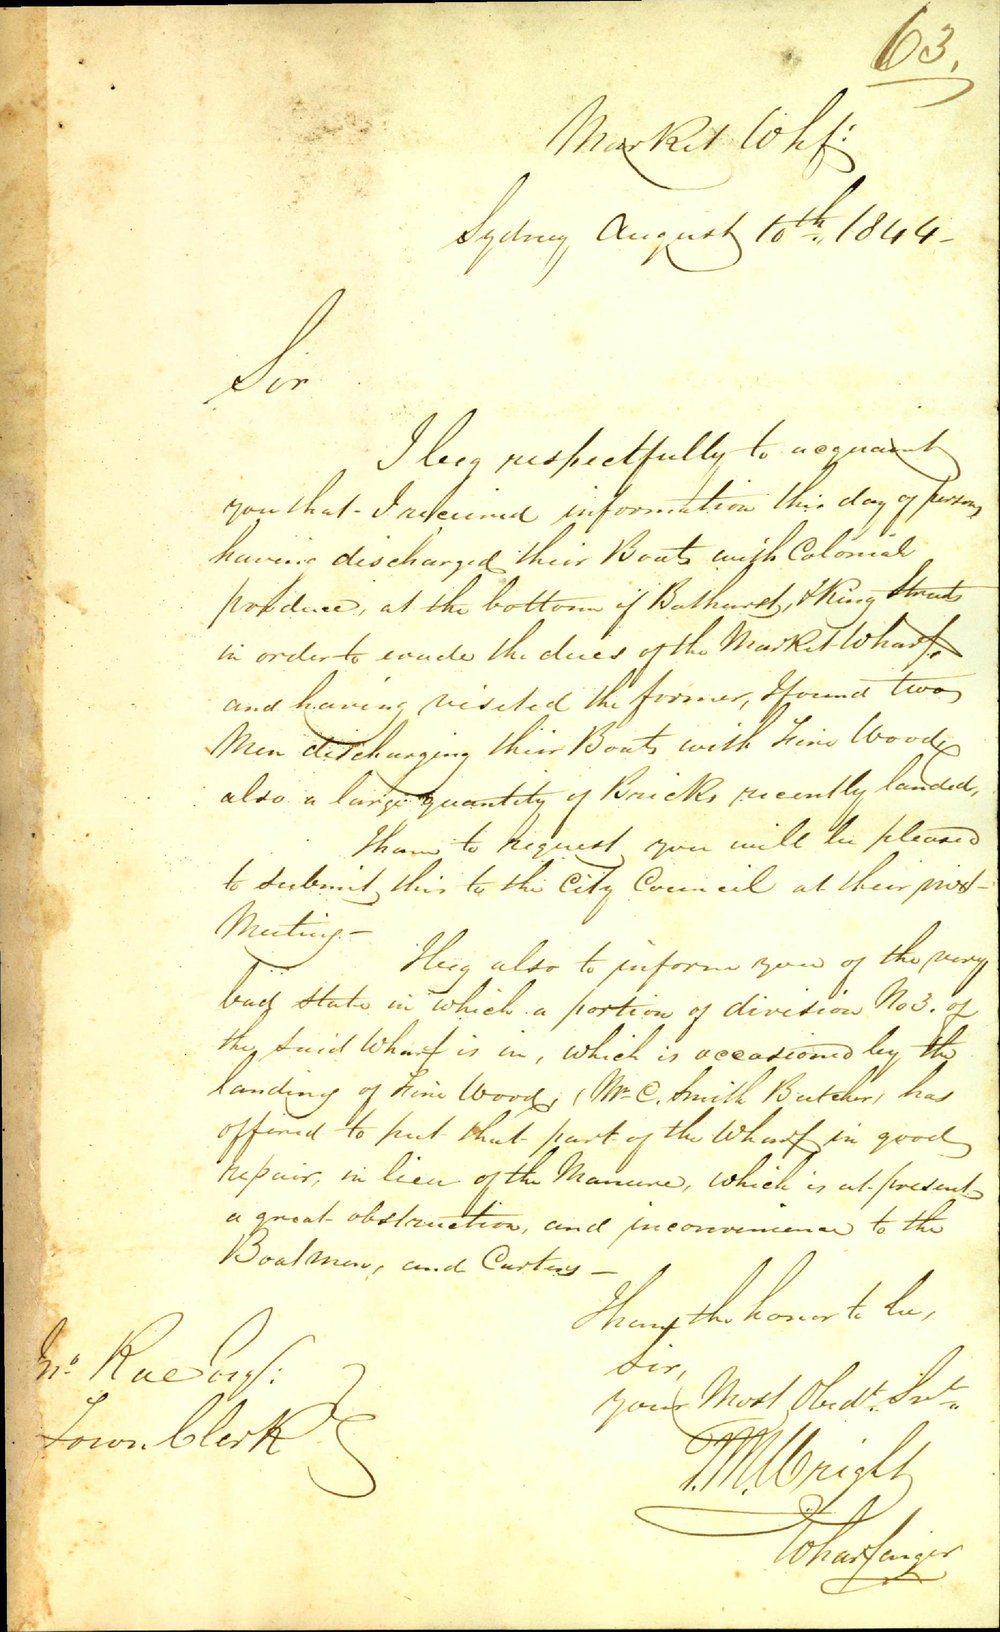 63.
Market Whf:
Sydney August 10th 1844-
Sir
I beg respectfully to acquaint
you that I received information this day of persons
having discharged their Boats with Colonial
produce, at the bottom of Bathurst, & King Streets
in order to evade the dues of the Market Wharf,
and having visited the former, I found two
Men discharging their Boats with Fire Wood,
also a large quantity of Bricks recently landed,
I have to request you will be pleased
to submit this to the City Council at their next
Meeting-
I beg also to inform you of the very
bad state in which a portion of division No 3. of
the said Wharf is in, which is occasioned by the
landing of Fire Wood, (Mr C. Smith Butcher) has
offered to put that part of the Wharf in good
repair, in lieu of the Manure, which is at present
a great obstruction, and inconvenience to the
Boatmen, and Carters -
I have the honor to be,
Sir,
your Most Obedt. Svt.
T. M. Wright
Wharfinger
Jno. Rae Esqr:
Town Clerk